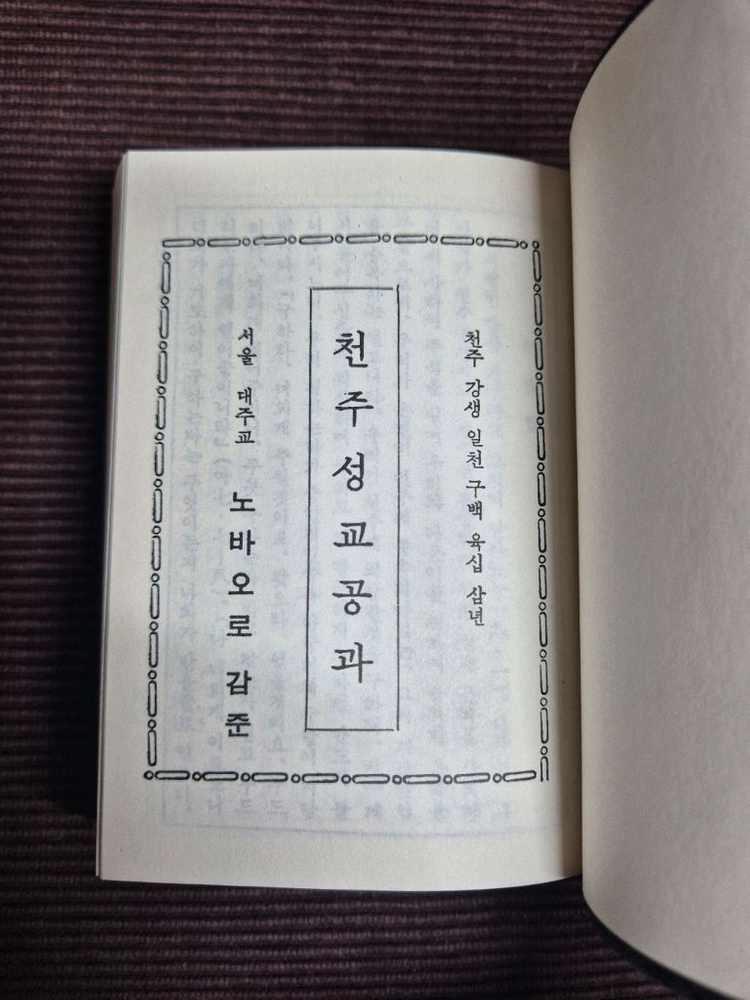 천주 강생 일천 구백 육십 삼년
천주성교공과
서울 대주교 노바오로 감준